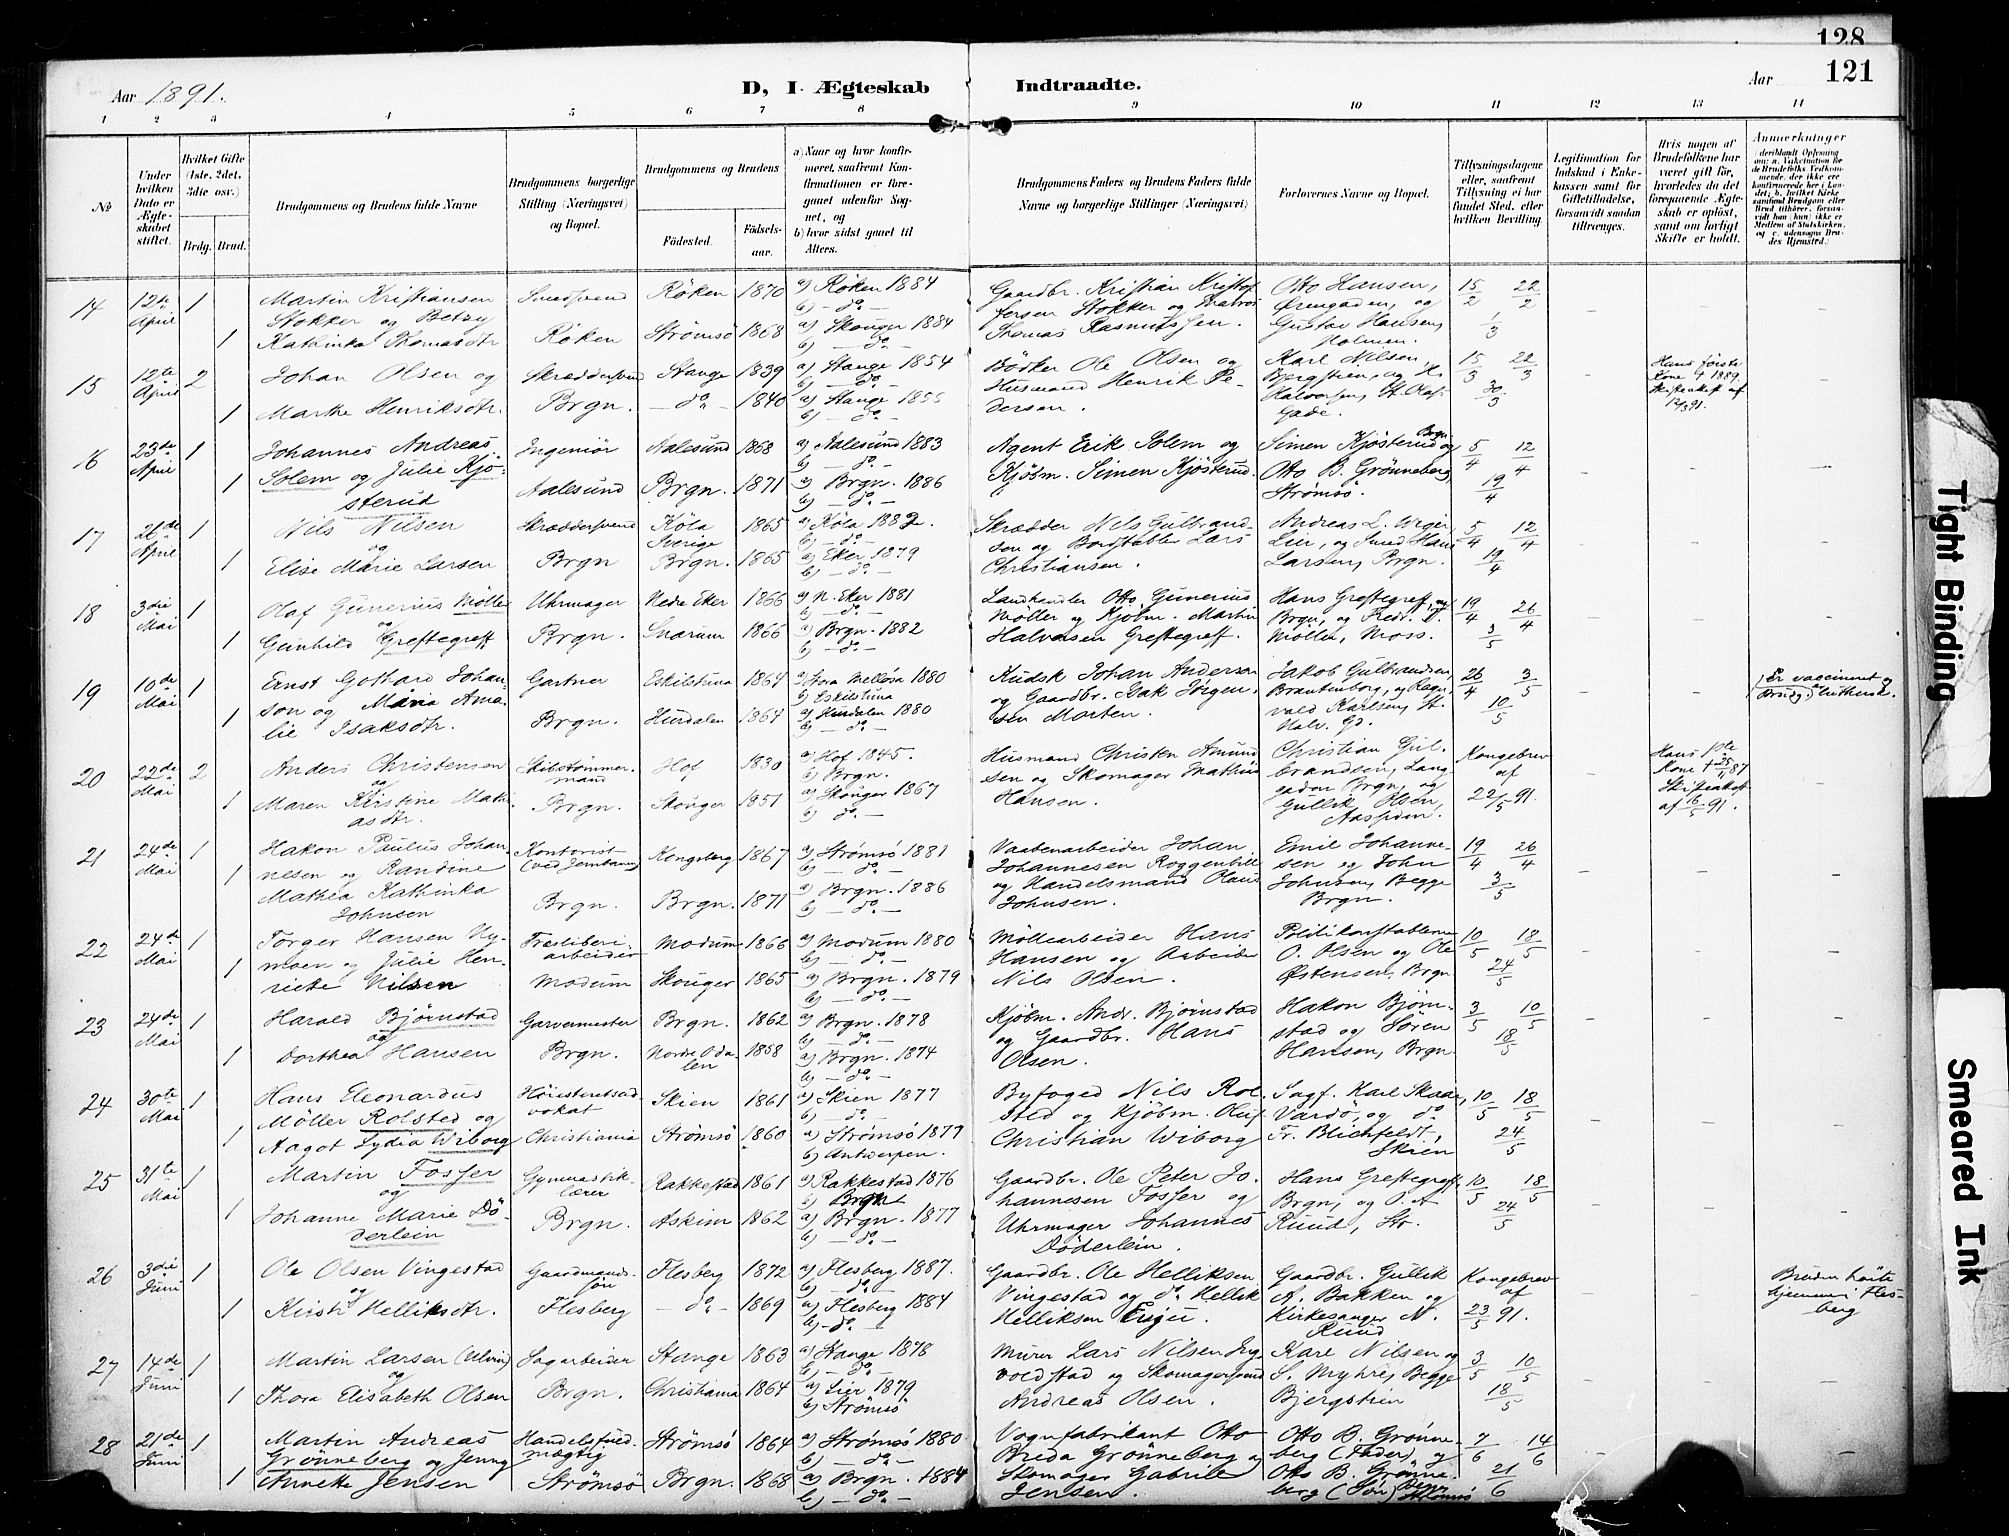 128
121
Aar 1891.
D, I. Ægteskab Indtraadte.
Aar
1 2 3 4 5 6 7 8 9 10 11 12 13 14
№
Under hvilken Dato er Ægteskabet stiftet.
Hvilket Gifte (1ste, 2det, 3die osv.)
Brdg. Brud.
Brudgommens og Brudens fulde Navne
Brudgommens borgerlige Stilling (Næringsvei) og Bopæl.
Brudgommens og Brudens
Födested.
Födselsaar.
a) Naar og hvor konfirmeret, saafremt Konfirmationen er foregaaet udenfor Sognet, og
b) hvor sidst gaaet til Alters.
Brudgommens Faders og Brudens Faders fulde Navne og borgerlige Stillinger (Næringsvei)
Forlovernes Navne og Bopæl.
Tillysningsdagene eller, saafremt Tillysning ei har fundet Sted, efter hvilken Bevilling.
Legitimation for Indskud i Enkekassen samt for Giftetilladelse, forsaavidt saadan tiltrænges.
Hvis nogen af Brudefolkene har været gift før, hvorledes da det foregaaende Ægteskab er oplöst, samt om lovligt Skifte er holdt.
Anmerkninger
14 12te April 1 Martin Kristiansen Smedsvend Röken 1870 a) Röken 1884 Gaardbr. Kristian Kristof- Otto Hansen, 15/2 22/2
Stokker og Betzy b) - do - fersen Stokker og Matros Örengaden, og
1 Kathinka Thomasdtr Röken Strömsö 1868 a) Skouger 1884 Thomas Rasmussen. Gustav Hansen, 1/3
b) - do - Holmen.
15 12te April 2 Johan Olsen og Skræddersvend Stange 1839 a) Stange 1854 Bödker Ole Olsen og Karl Nilsen, 15/3 22/3 Hans förste
b) - do - Husmand Henrik Pe- Bjergstien, og H. Kone † 1889
1 Marthe Henriksdtr. Brgn. - do - 1840 a) Stange 1855 dersen. Halvorsen, St. Olafs- 30/3 Skifteattest af
b) - do - Gade. 12/3 91.
16 23de April 1 Johannes Andreas Ingeniör Aalesund 1868 a) Aalesund 1883 Agent Erik Solem og Simen Kjösterud Brgn. og 5/4 12/4
1 Solem og Julie Kjö- Aalesund Brgn. 1871 a) Brgn. 1886 Kjöbm. Simen Kjösterud. Otto B. Grönneberg,
sterud b) - do - Strömsö. 19/4
17 26de April 1 Nils Nilsen Skræddersvend Köla 1865 a) Köla 1882. Skrædder Nils Gulbrand- Andreas L. 5/4 12/4
og Sverige b) - do - sen og Bordstabler Lars Lier, og Smed Hans
1 Elise Marie Larsen Brgn Brgn. 1865 a) Eker 1879 Christiansen. Larsen, Brgn. 19/4
b) - do -
18 3die Mai 1 Olaf Gunerius Möller Uhrmager Nedre Eker 1866 a) N. Eker 1881 Landhandler Otto Gunerius Hans Greftegreff, 19/4 26/4
og b) - do - Möller og Kjöbm. Martin Brgn, og Fredr.
1 Gunhild Greftegreff Brgn. Snarum 1866 a) Brgn. 1882 Halvorsen Greftegreff. Möller, Moss. 3/5
b) - do -
19 10de Mai 1 Ernst Gothard Johan- Gartner Eskilstuna 1864 a) Stora Mellösa 1880 Kudsk Johan Anderson Jakob Gulbrandsen, 26/4 3/5 Er vaccineret og
son og Maria Ama- b) Eskilstuna og Gaardbr. Isak Jörgen- Brantenborg, og Ragn- (Brudg) luthersk.
1 lie Isaksdtr. Brgn. Hurdalen 1864 a) Hurdalen 1880 sen Morten. vald Karlsen, St. 10/5
b) - do - Halv. Gd.
20 22de Mai 2 Anders Christensen Skibstömmermand Hof 1830 a) Hof 1845. Husmand Christen Amund- Christian Gul- Kongebrev Hans 1ste
og b) Brgn. sen og Skomager Mathias brandsen, Lang- af Kone † 25/11 87
1 Maren Kirstine Math- Brgn. Skouger 1851 a) Skouger 1867 Hansen. gaden Brgn, og 22/5 91. Skifteattest
asdtr. b) - do - Gullik Olsen, af 6/5 91.
Aassiden.
21 24de Mai 1 Hakon Paulus Johan- Kontorist Kongsberg 1867 a) Strömsö 1881 Vaabenarbeider Johan Emil Johanne- 19/4 26/4
1 nesen og Randine (ved Jernbanen) b) - do - Johannesen Roggenbill sen og John
Mathea Kathinka Brgn. Brgn. 1871 a) Brgn. 1886 og Handelsmand Olaus Johnsen, Begge 3/5
Johnsen b) - do - Johnsen. Brgn.
22 24de Mai 1 Torger Hansen Ny- Træsliberiarbeider Modum 1866 a) Modum 1880 Möllearbeider Hans Politikonstablerne 10/5 18/5
moen og Julie Hen- b) - do - Hansen og Arbeider O. Olsen og Ole
1 riette Nilsen Modum Skouger 1865 a) Brgn. 1879 Nils Olsen. Östensen, Brgn 24/5
b) - do -
23 24de Mai 1 Harald Björnstad Garvermester Brgn. 1862 a) Brgn. 1878 Kjöbm. Andr. Björnstad Hakon Björn- 3/5 10/5
og b) - do - og Gaardbr. Hans stad og Sören
1 Dorthea Hansen Brgn. Nordre Odalen 1858 a) Brgn. 1874 Olsen. Hansen, Brgn 18/5
b) - do -
24 30te Mai 1 Hans Eleonardus Höiesteretsadvokat Skien 1861 a) Skien 1877 Byfoged Nils Rol- Sagf. Karl Skaar, 10/5 18/5
Möller Rolsted og b) - do - sted og Kjöbm. Oluf Vardö, og do
1 Aagot Lydia Wiborg Christiania Strömsö 1860 a) Strömsö 1877 Christian Wiborg Fr. Blichfeldt, 24/5
b) Antwerpen. Skien
25 31te Mai 1 Martin Fosser Gymnastiklærer Rakkestad 1861 a) Rakkestad 1876 Gaardbr. Ole Peter Jo- Hans Greftegreff 10/5 18/5
og b) Brgn hannesen Fosser og Brgn, og O. A
1 Johanne Marie Dö- Brgn. Askim 1862 a) Brgn. 1877 Uhrmager Johannes Ruud, Str. 24/5
derlein b) - do - Döderlein.
26 3die Juni 1 Ole Olsen Vingestad Gaardmandssön Flesberg 1872 a) Flesberg 1887. Gaardbr. Ole Helliksen Gaardbr. Gullik Kongebrev Bruden hörte
og b) - do - Vingestad og do Hellik A. Bakken og af hjemme i Fles-
1 Kirsti Helliksdtr. Flesberg - do - 1869 a) Flesberg 1884 Helliksen Kirkesanger N. 23/5 91. berg
b) - do - Ruud
27 14de Juni 1 Martin Larsen (Ulvin) Sagarbeider Stange 1863 a) Stange 1878 Murer Lars Nilsen Karl Nilsen og 3/5 10/5
og b) - do - voldstad og Skomagersvend S. Myhre, Begge
1 Thora Elisabeth Olsen Brgn. Christiania 1864 a) Lier 1879 Andreas Olsen. Bjergstien 18/5
b) Strömsö
28 21de Juni 1 Martin Andreas Handelsfuldmægtig Strömsö 1864 a) Strömsö 1880 Vognfabrikant Otto Otto B. Grönne- 7/6 14/6
Grönneberg og Jenny b) - do - Breda Grönneberg og berg (Fader) og
1 Annette Jensen Strömsö Brgn. 1868 a) Brgn. 1884 Skomager Gabriel Otto B. Grönne- 21/6
b) - do - Jensen. berg (Sön) Strömsö
Tight Binding
Smeared Ink